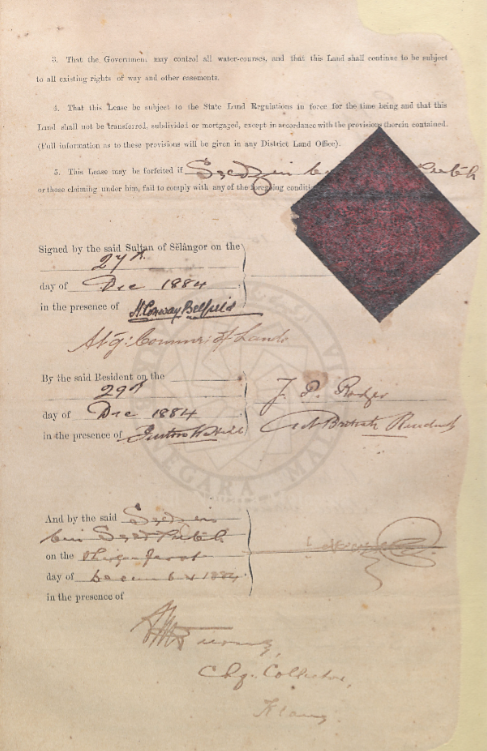 3. That the Government may control all water-courses, and that this Land shall continue to be subject
to all existing rights of way and other easements.
4. That this Lease be subject to the State Land Regulations in force for the time being and that this
Land shall not be transferred, subdivided or mortgaged, except in accordance with the provisions therein contained.
(Full information as to these provisions will be given in any District Land Office).
5. This Lease may be forfeited if
or those claiming under him, fail to comply with any of the foregoing
Signed by the said Sultan of Sĕlângor on the
27th
day of Dec 1884
in the presence of H. Conway Belfield
Actg: Commr: of Lands
By the said Resident on the
29th
J. P. Rodger
day of Dec 1884
Resident
in the presence of
And by the said
bin
on the
day of December 1884
in the presence of
Collector,
Klang
NEGARA